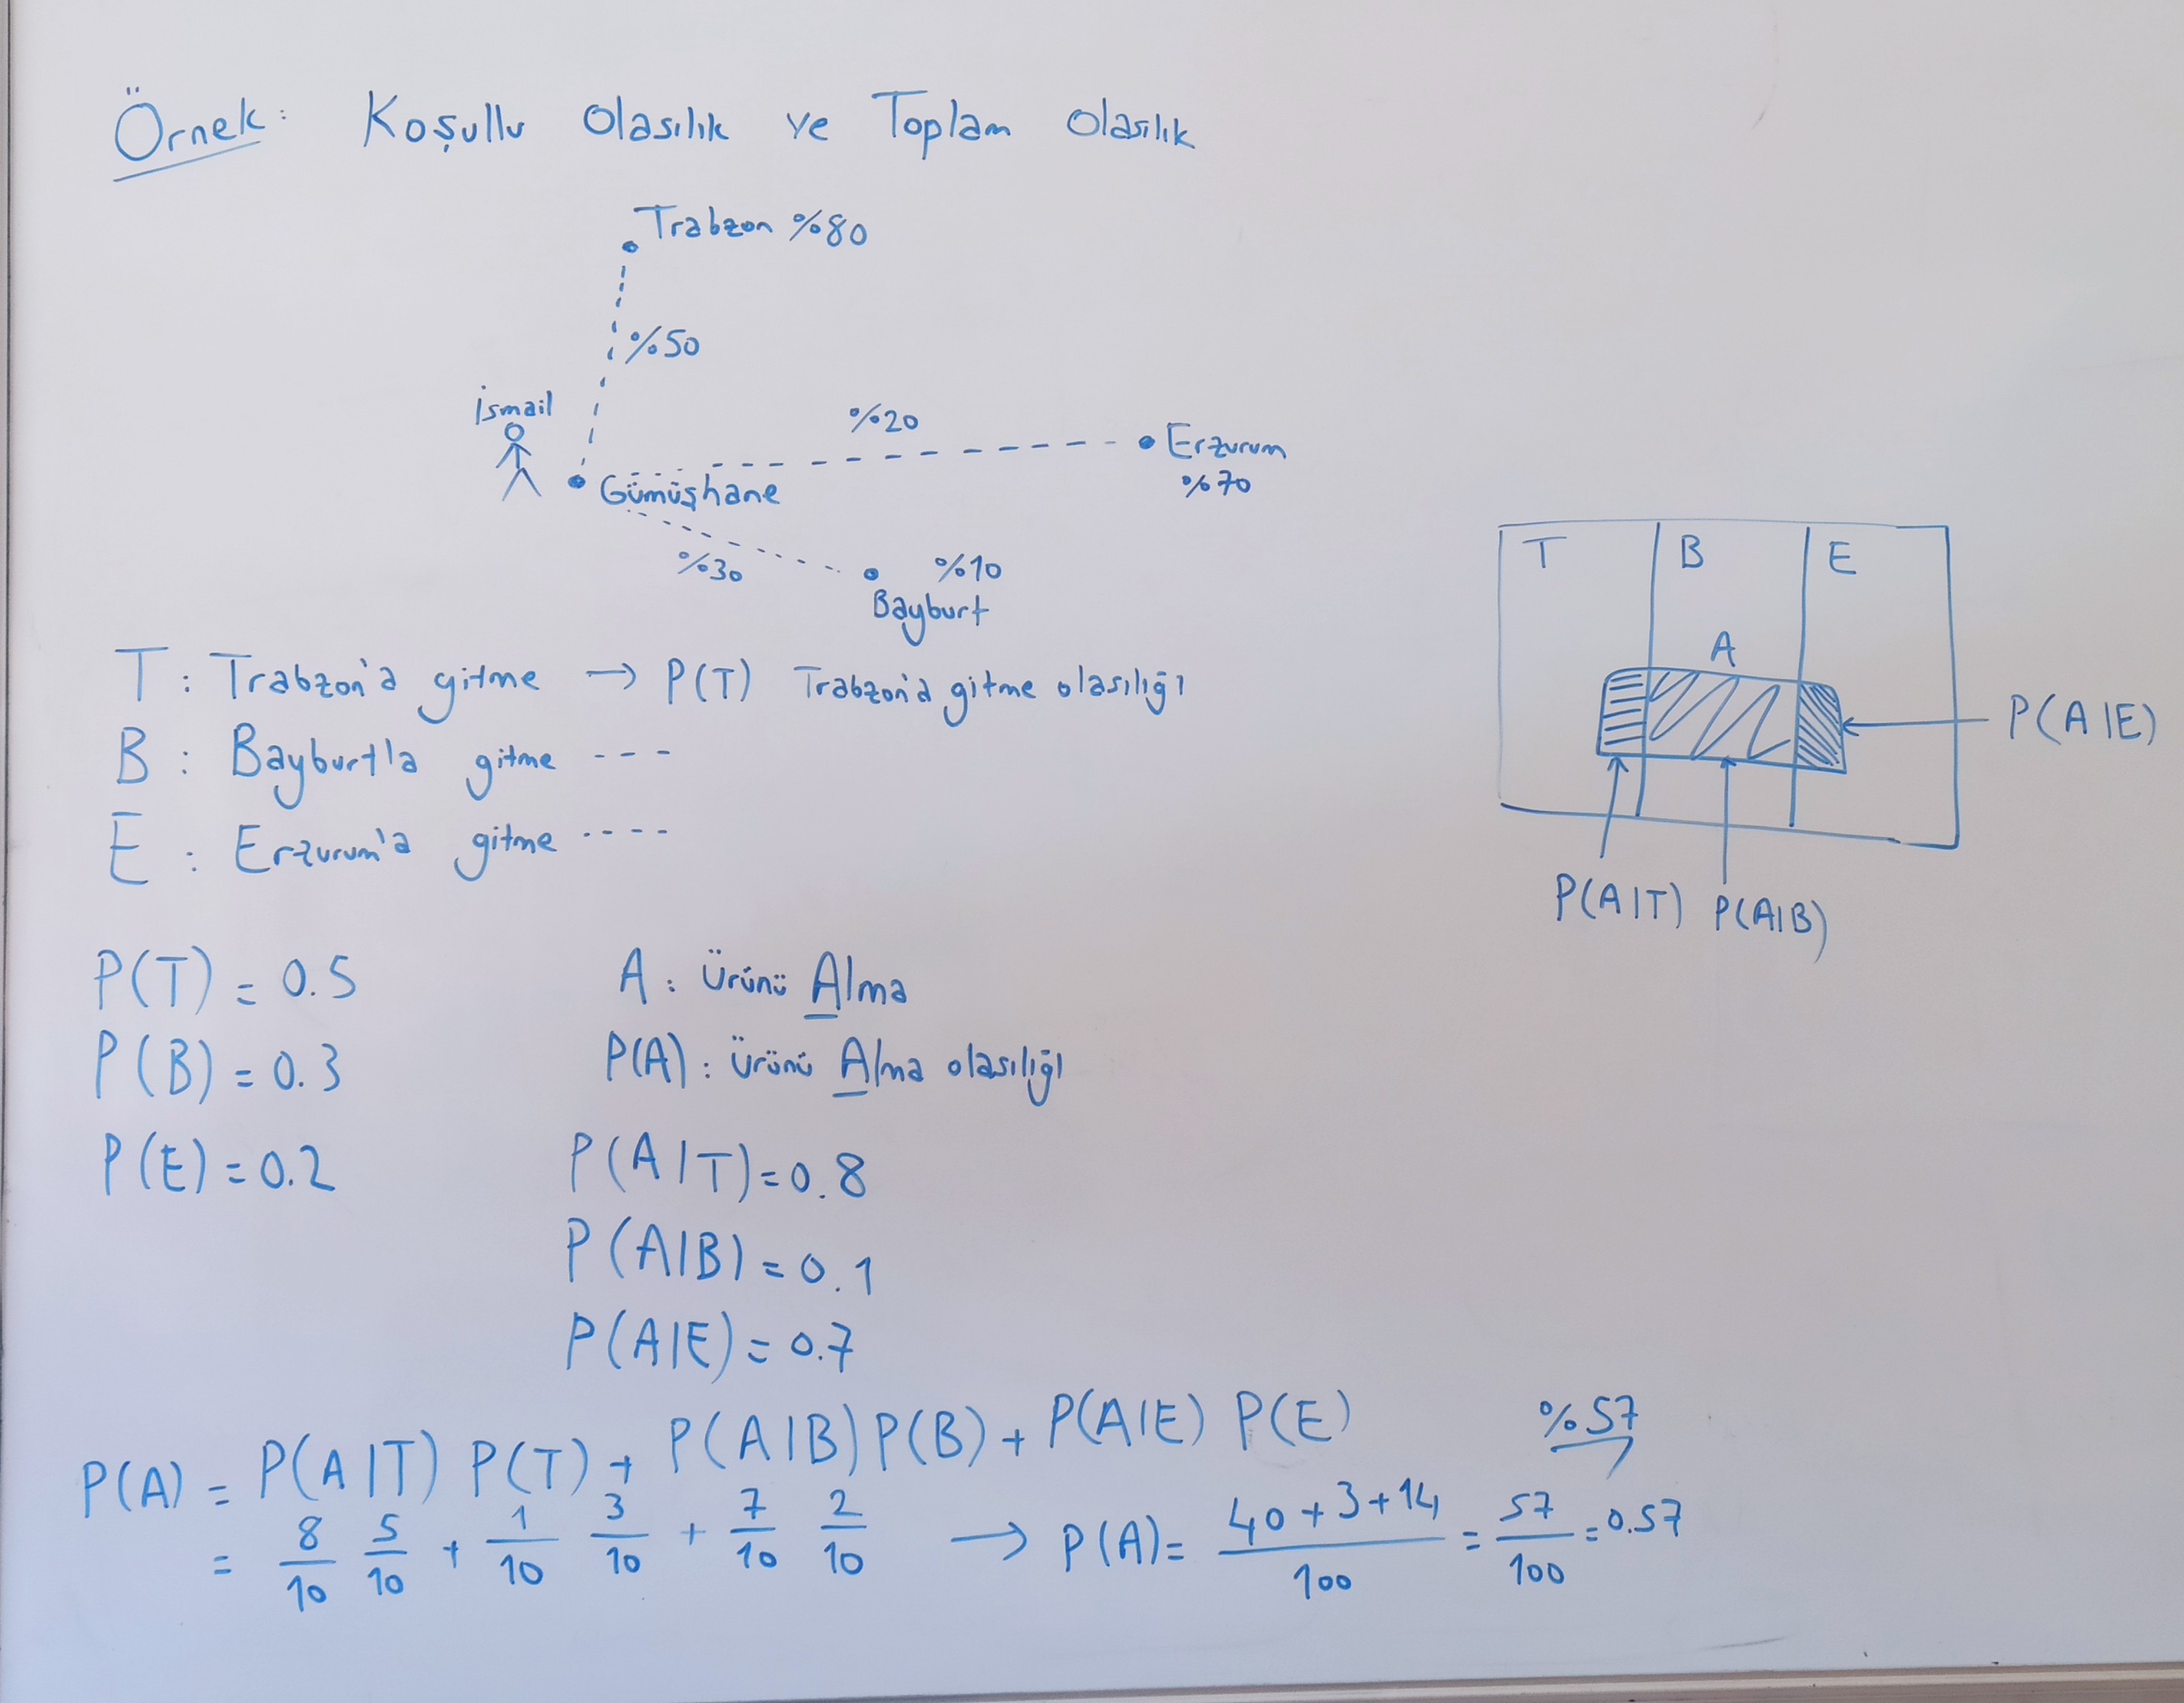 Örnek: Koşullu Olasılık ve Toplam Olasılık
Trabzon %80
%50
İsmail
%20
Erzurum
%70
Gümüşhane
%30
%10
Bayburt
T B E
A
P(A|E)
P(A|T) P(A|B)
T : Trabzon'a gitme → P(T) Trabzon'a gitme olasılığı
B : Bayburt'a gitme ---
E : Erzurum'a gitme ----
P(T) = 0.5
P(B) = 0.3
P(E) = 0.2
A : Ürünü Alma
P(A) : ürünü Alma olasılığı
P(A|T) = 0.8
P(A|B) = 0.1
P(A|E) = 0.7
P(A) = P(A|T) P(T) + P(A|B) P(B) + P(A|E) P(E)
%57
= 8/10 5/10 + 1/10 3/10 + 7/10 2/10 → P(A) = 40+3+14/100 = 57/100 = 0.57